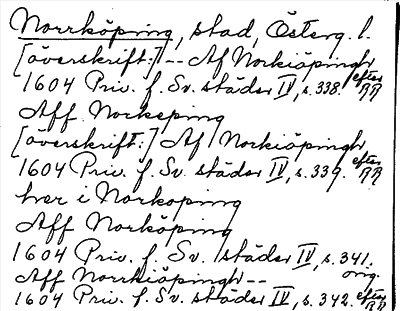 Norrköping, stad, Österg. l.
[överskrift:] -- Af Norkiöpingh
1604 Priv. f. Sv. städer IV, s. 338. efter RR
Aff Norkeping
[överskrift:] Af Norkiöpingh
1604 Priv. f. Sv. städer IV, s. 339. efter RR
her i Norkoping
Aff Norköping
1604 Priv. f. Sv. städer IV, s. 341. orig.
Aff Norrkiöpingh --
1604 Priv. f. Sv. städer IV, s. 342. efter RR